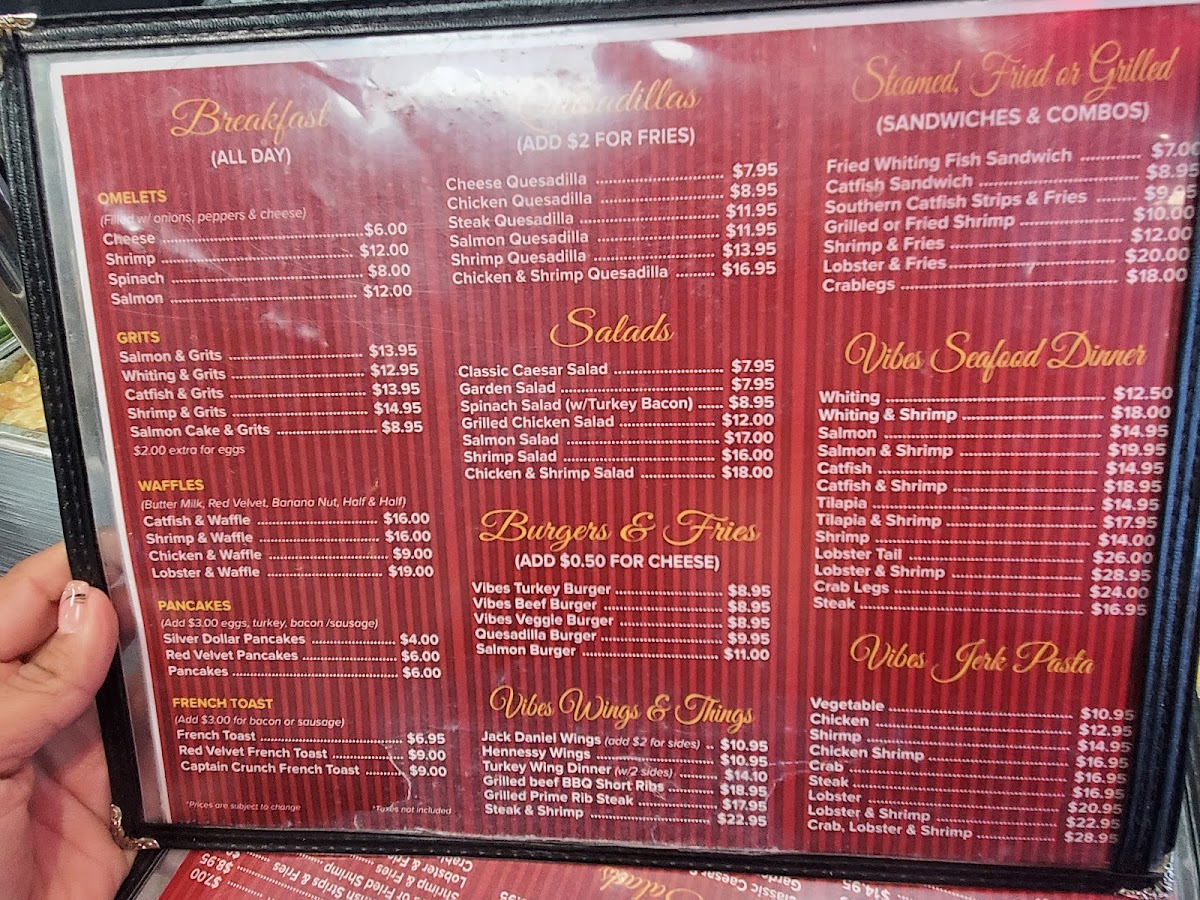 Breakfast
(ALL DAY)
OMELETS
(Filled w/ onions, peppers & cheese)
Cheese $6.00
Shrimp $12.00
Spinach $8.00
Salmon $12.00
GRITS
Salmon & Grits $13.95
Whiting & Grits $12.95
Catfish & Grits $13.95
Shrimp & Grits $14.95
Salmon Cake & Grits $8.95
$2.00 extra for eggs
WAFFLES
(Butter Milk, Red Velvet, Banana Nut, Half & Half)
Catfish & Waffle $16.00
Shrimp & Waffle $16.00
Chicken & Waffle $9.00
Lobster & Waffle $19.00
PANCAKES
(Add $3.00 eggs, turkey, bacon /sausage)
Silver Dollar Pancakes $4.00
Red Velvet Pancakes $6.00
Pancakes $6.00
FRENCH TOAST
(Add $3.00 for bacon or sausage)
French Toast $6.95
Red Velvet French Toast $9.00
Captain Crunch French Toast $9.00
*Prices are subject to change
*Taxes not included
Quesadillas
(ADD $2 FOR FRIES)
Cheese Quesadilla $7.95
Chicken Quesadilla $8.95
Steak Quesadilla $11.95
Salmon Quesadilla $11.95
Shrimp Quesadilla $13.95
Chicken & Shrimp Quesadilla $16.95
Salads
Classic Caesar Salad $7.95
Garden Salad $7.95
Spinach Salad (w/Turkey Bacon) $8.95
Grilled Chicken Salad $12.00
Salmon Salad $17.00
Shrimp Salad $16.00
Chicken & Shrimp Salad $18.00
Burgers & Fries
(ADD $0.50 FOR CHEESE)
Vibes Turkey Burger $8.95
Vibes Beef Burger $8.95
Vibes Veggie Burger $8.95
Quesadilla Burger $9.95
Salmon Burger $11.00
Vibes Wings & Things
Jack Daniel Wings (add $2 for sides) $10.95
Hennessy Wings $10.95
Turkey Wing Dinner (w/2 sides) $14.10
Grilled beef BBQ Short Ribs $18.95
Grilled Prime Rib Steak $17.95
Steak & Shrimp $22.95
Steamed, Fried or Grilled
(SANDWICHES & COMBOS)
Fried Whiting Fish Sandwich $7.00
Catfish Sandwich $8.95
Southern Catfish Strips & Fries
Grilled or Fried Shrimp $10.00
Shrimp & Fries $12.00
Lobster & Fries $20.00
Crablegs $18.00
Vibes Seafood Dinner
Whiting $12.50
Whiting & Shrimp $18.00
Salmon $14.95
Salmon & Shrimp $19.95
Catfish $14.95
Catfish & Shrimp $18.95
Tilapia $14.95
Tilapia & Shrimp $17.95
Shrimp $14.00
Lobster Tail $26.00
Lobster & Shrimp $28.95
Crab Legs $24.00
Steak $16.95
Vibes Jerk Pasta
Vegetable $10.95
Chicken $12.95
Shirmp $14.95
Chicken Shrimp $16.95
Crab $16.95
Steak $16.95
Lobster $20.95
Lobster & Shrimp $22.95
Crab, Lobster & Shrimp $28.95